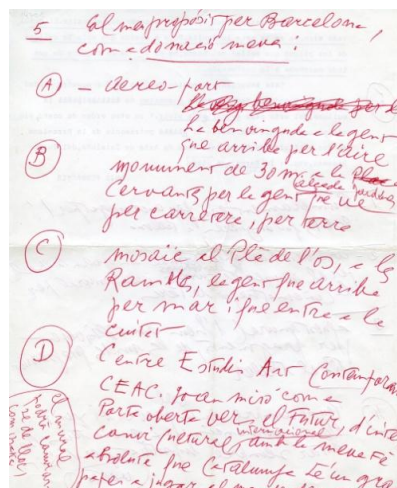 5 El meu propòsit per Barcelona,
com a donació meva:
A - aereo-port
La benvinguda a la gent
que arriba per l'aire
B monument de 30 m. a la
Cervantes per la gent que ve
per carretera, per terra
C mosaic al Pla de l'os, a les
Rambles, la gent que arriba
per mar i que entra a la
ciutat
D Centre Estudis Art Contemporani
CEAC. Joan Miró com a
Porta oberta ver el Futur, d'inter
canvi cultural internacional, amb la meva Fé
absoluta que Catalunya té un gran
paper a jugar
el mural